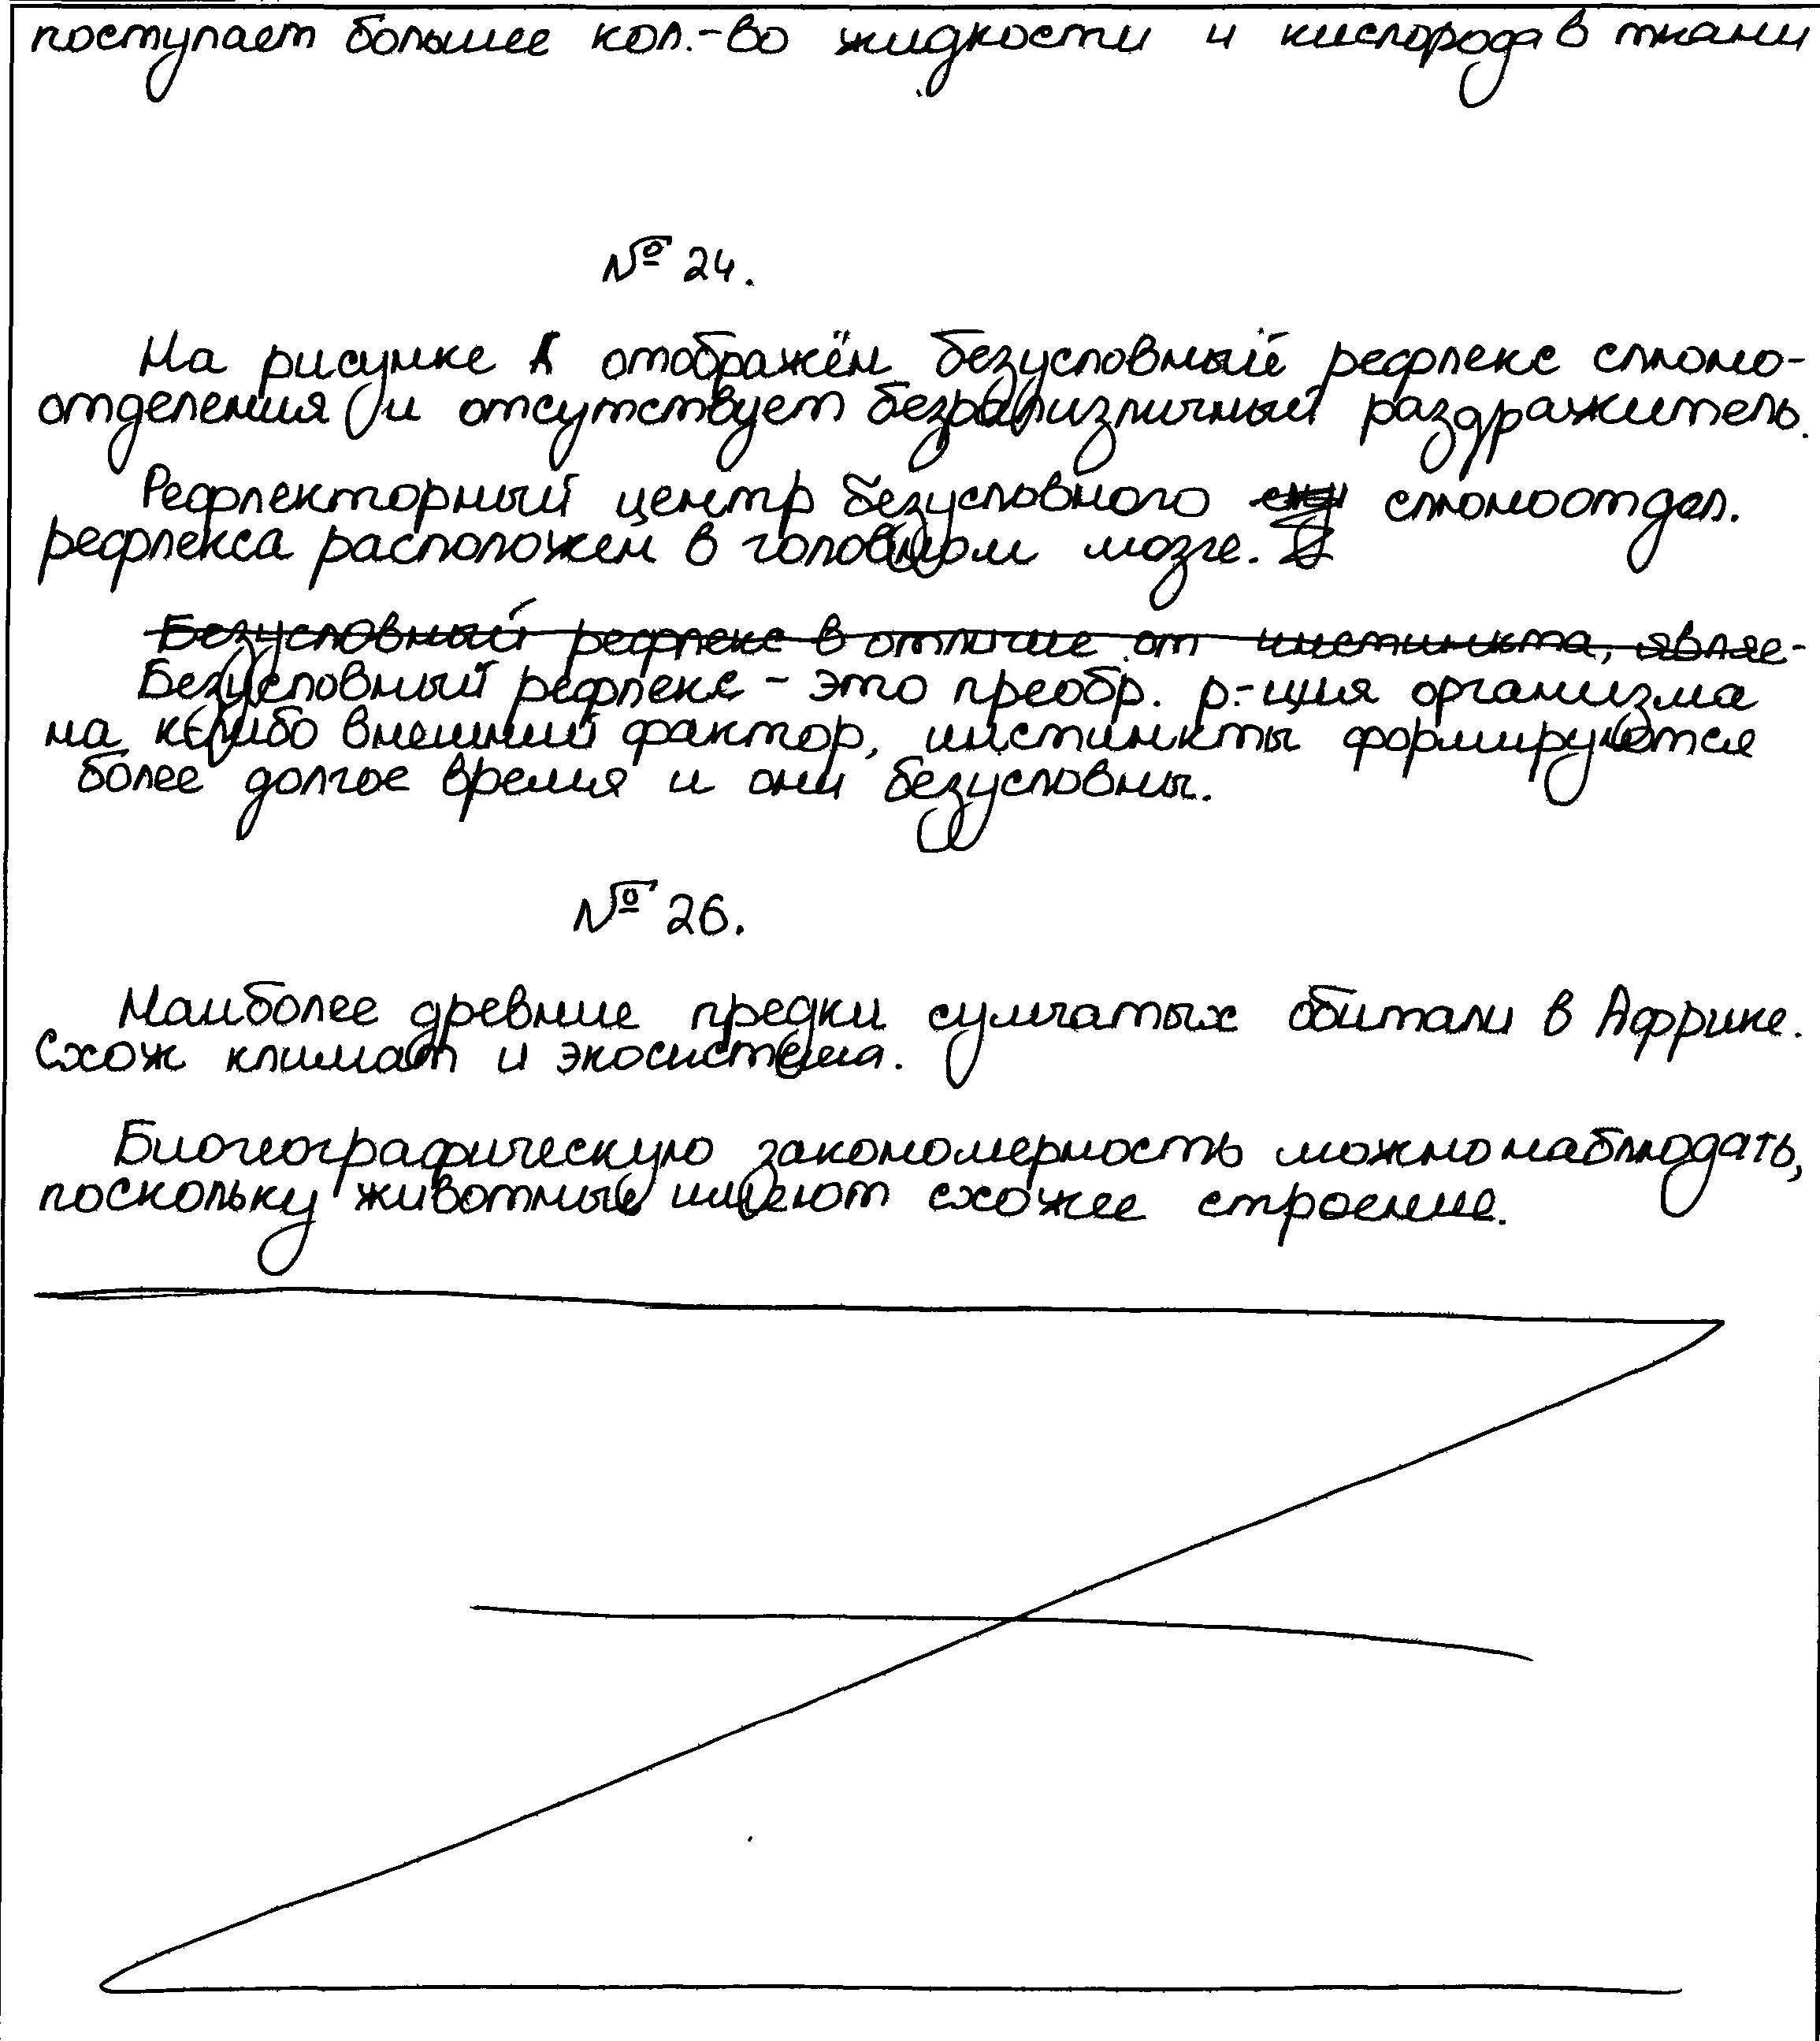 поступает большее кол.-во жидкости и кислорода в ткани
№ 24.
На рисунке А отображён безусловный рефлекс слюно-
отделения и отсутствует безразличный раздражитель.
Рефлекторный центр безусловного слюноотдел.
рефлекса расположен в головном мозге.
Безусловный рефлекс в отличие от инстинкта, являе-
Безусловный рефлекс - это преобр. р-ция организма
на к-либо внешний фактор, инстинкты формируются
более долгое время и они безусловны.
№ 26.
Наиболее древние предки сумчатых обитали в Африке.
Схож климат и экосистема.
Биогеографическую закономерность можно наблюдать,
поскольку животные имеют схожее строение.